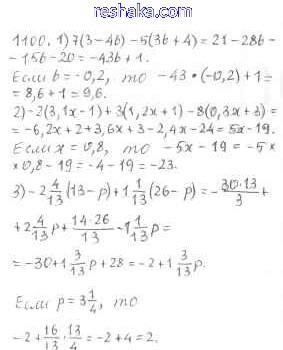 www.gdzbest.ru
1100. 1) 7(3-4b)-5(3b+4)=21-28b-
-15b-20=-43b+1.
Если b=-0,2, то -43•(-0,2)+1=
=8,6+1=9,6.
2)-2(3,1x-1)+3(1,2x+1)-8(0,3x+3)=
=-6,2x+2+3,6x+3-2,4x-24=5x-19.
Если x=0,8, то -5x-19=-5×
×0,8-19=-4-19=-23.
3)-2 4/13(13-p)+1 1/13(26-p)=-30·13/3+
+2 4/13p+14·26/13-1 1/13p=
=-30+1 3/13p+28=-2+1 3/13p.
Если p=3 1/4, то
-2+16/13·13/4=-2+4=2.